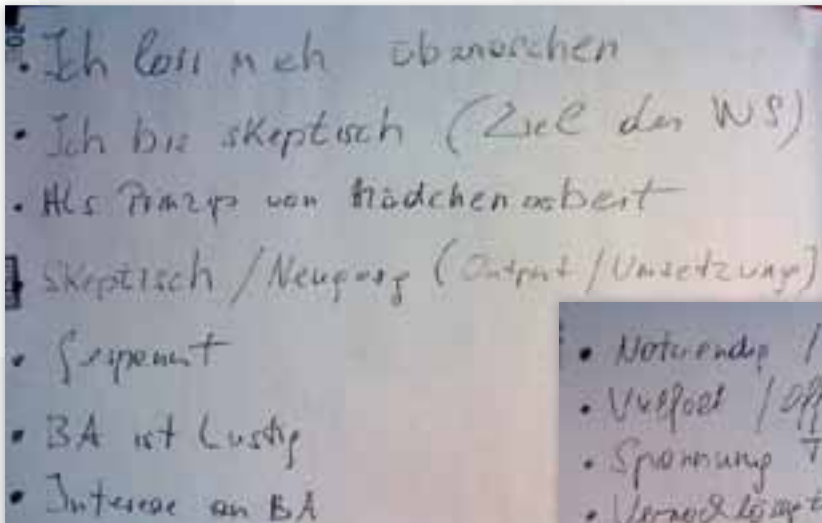 • Ich lass mich überraschen
• Ich bin skeptisch (Ziel der WS)
• Als Prinzip von Mädchenarbeit
skeptisch / Neugierig (Output / Umsetzung)
• Gespannt
• BA ist Lustig
• Interesse an BA
• Notwendig /
• Vielfalt / Off
• Spannung T
• Vernachlässigt